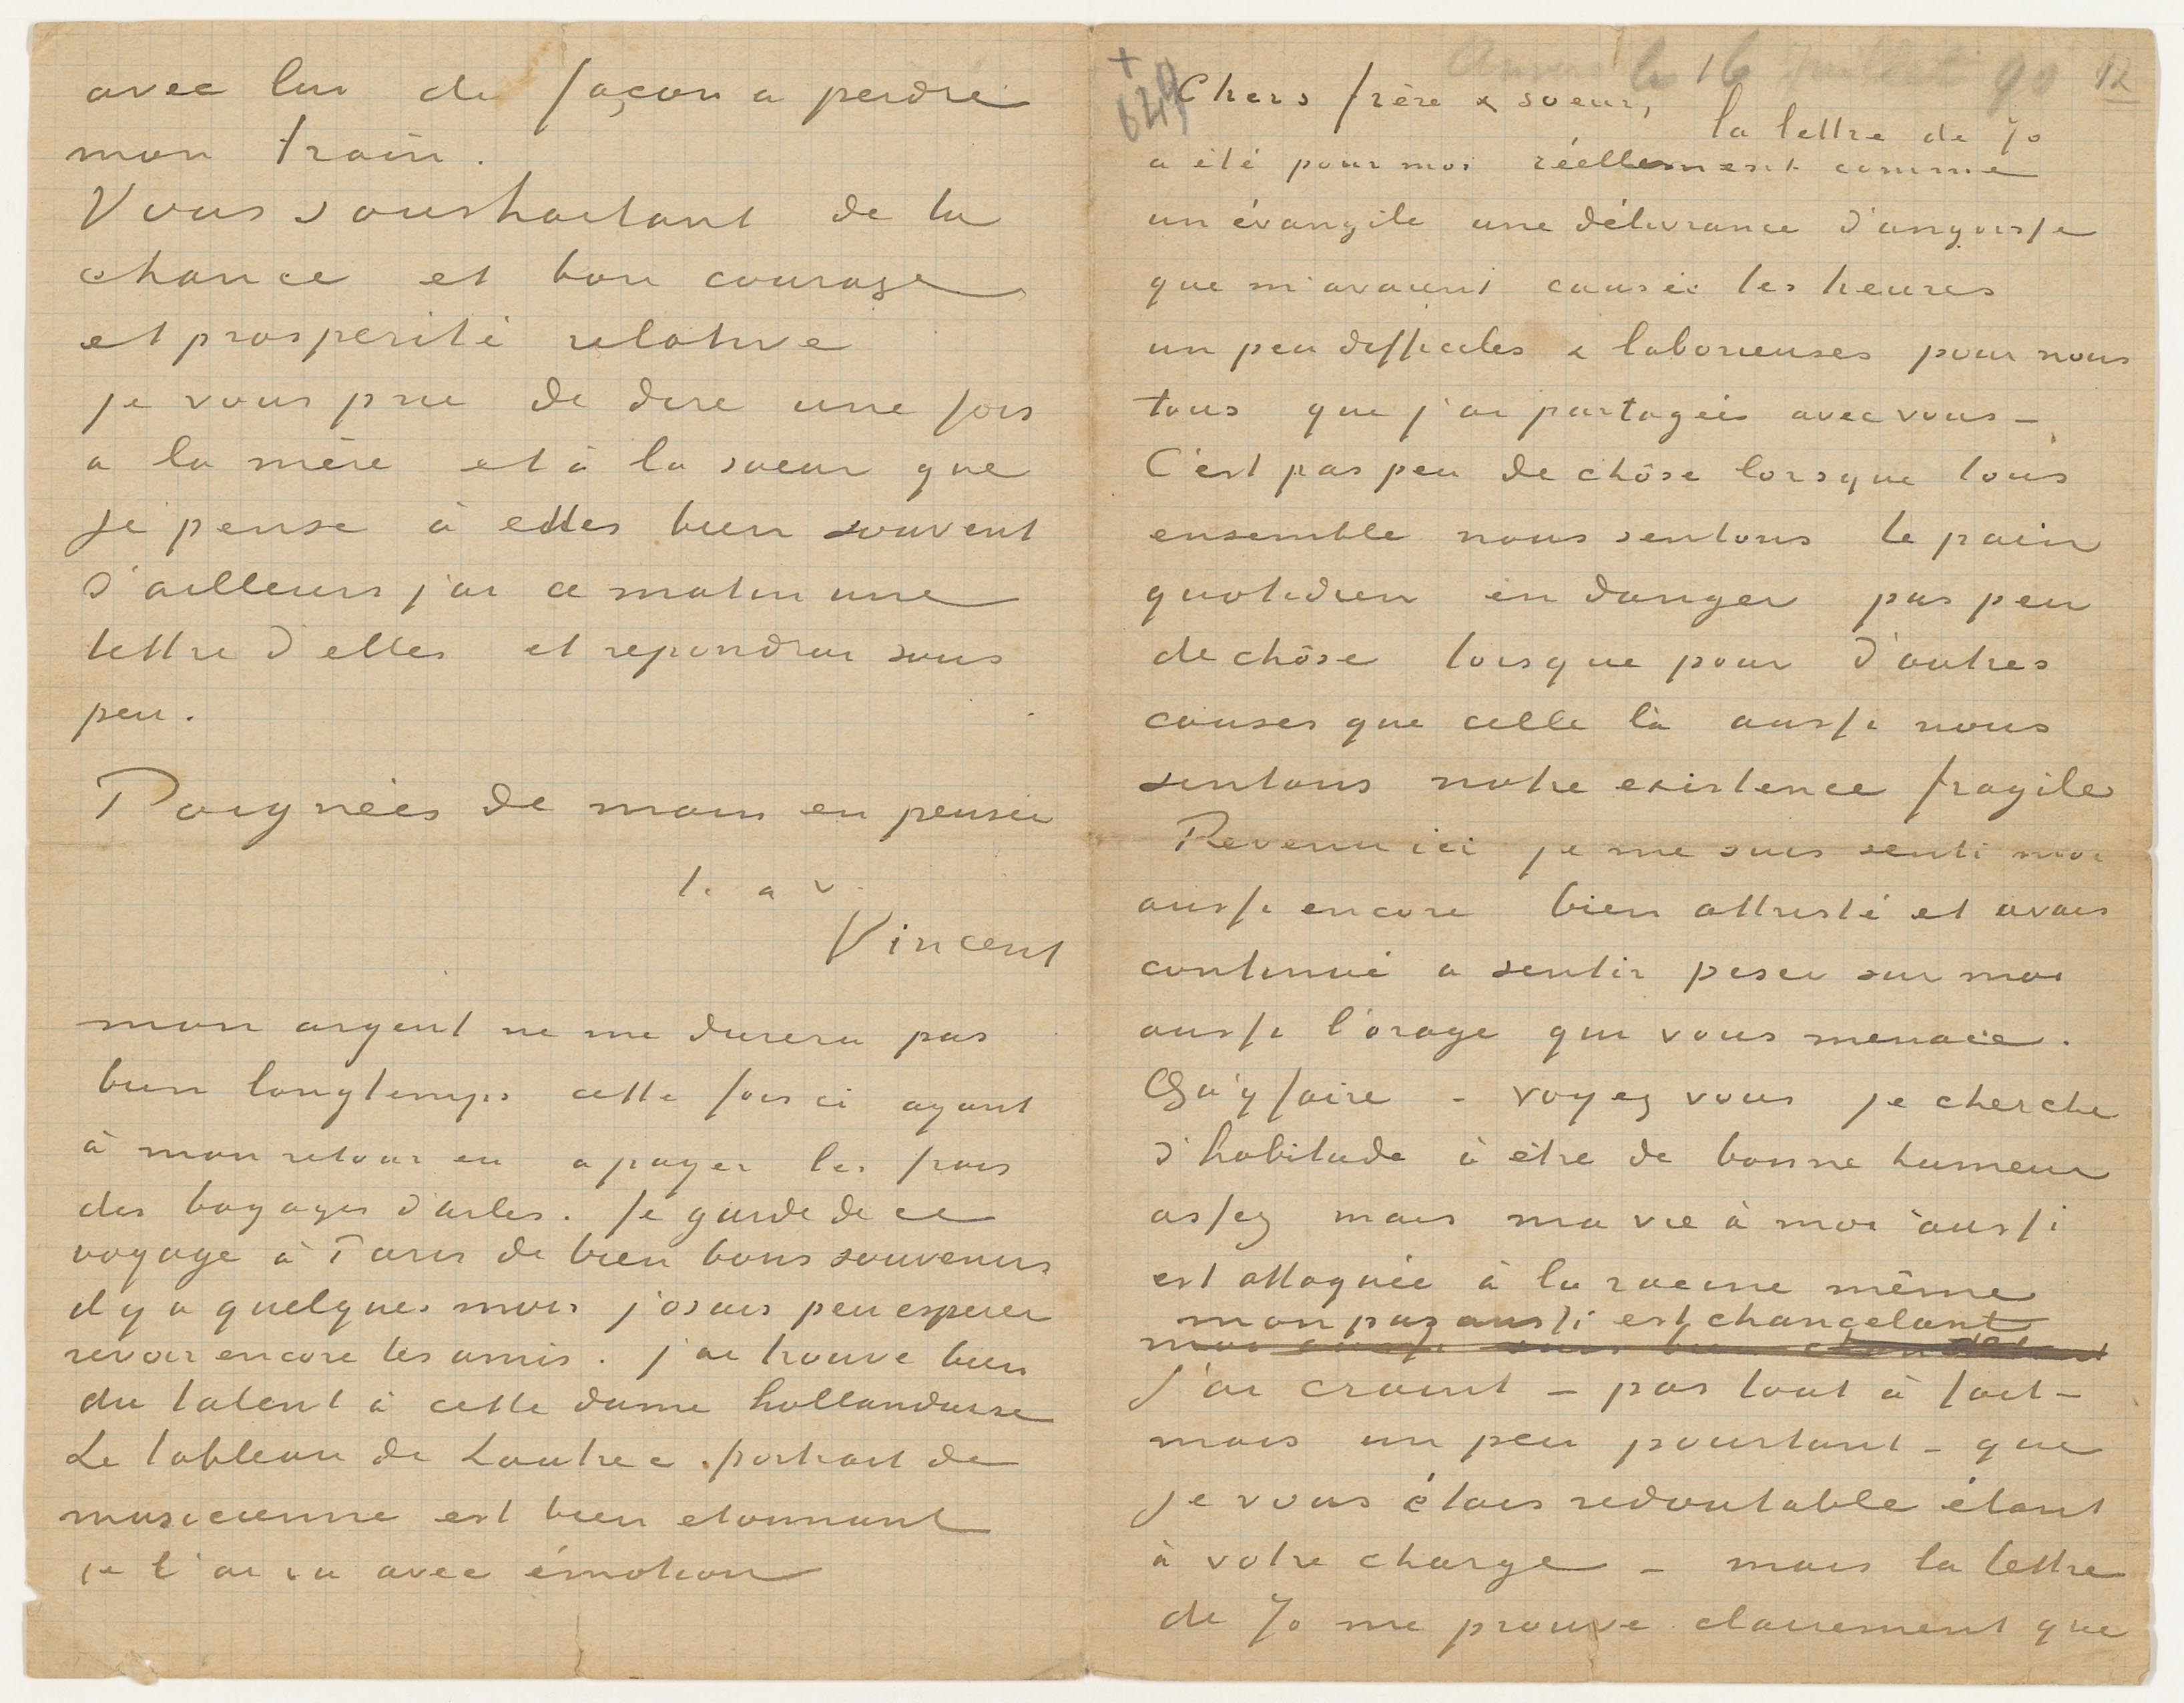 avec lui de façon a perdre
mon train.
Vous souhaitant de la
chance et bon courage
et prosperité relative
je vous prie de dire une fois
a la mère et à la soeur que
je pense à elles bien souvent
d'ailleurs j'ai ce matin une
lettre d'elles et repondrai sous
peu.
Poignées de main en pensée
t. a v.
Vincent
mon argent ne me durera pas
bien longtemps cette fois ci ayant
à mon retour eu a payer les frais
des bagages d'arles. Je garde de ce
voyage à Paris de bien bons souvenirs
il y a quelques mois j'osais peu esperer
revoir encore les amis. j'ai trouvé bien
du talent à cette dame hollandaise
Le tableau de Lautrec portrait de
musicienne est bien etonnant
je l'ai vu avec émotion
+
649
le 16 90 12
Chers frère & soeur,
la lettre de Jo
a été pour moi réellement comme
un évangile une délivrance d'angoisse
que m'avaient causée les heures
un peu difficiles & laborieuses pour nous
tous que j'ai partagées avec vous –
C'est pas peu de chôse lorsque tous
ensemble nous sentons le pain
quotidien en danger pas peu
de chôse lorsque pour d'autres
causes que celle là aussi nous
sentons notre existence fragile
Revenu ici je me suis senti moi
aussi encore bien attristé et avais
continué a sentir peser sur moi
aussi l'orage qui vous menace.
Qu'y faire – voyez vous je cherche
d'habitude à être de bonne humeur
assez mais ma vie à moi aussi
est attaquée à la racine même
mon pas aussi est chancelant
J'ai craint – pas tout à fait –
mais un peu pourtant – que
je vous étais redoutable étant
à votre charge – mais la lettre
de Jo me prouve clairement que